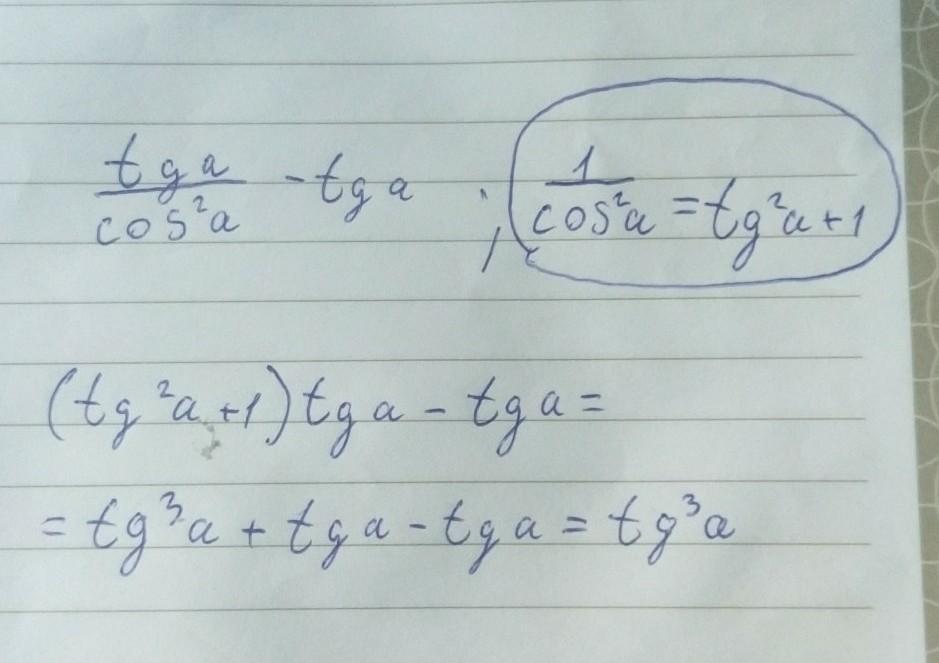 tg a / cos²a - tg a ; 1 / cos²a = tg²a + 1
(tg²a + 1) tg a - tg a =
= tg³a + tg a - tg a = tg³a